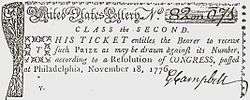 United States Lottery. No
CLASS the SECOND.
THIS TICKET entitles the Bearer to receive
such PRIZE as may be drawn against its Number,
according to a Resolution of CONGRESS, passed
at Philadelphia, November 18, 1776.
G Campbell
V.